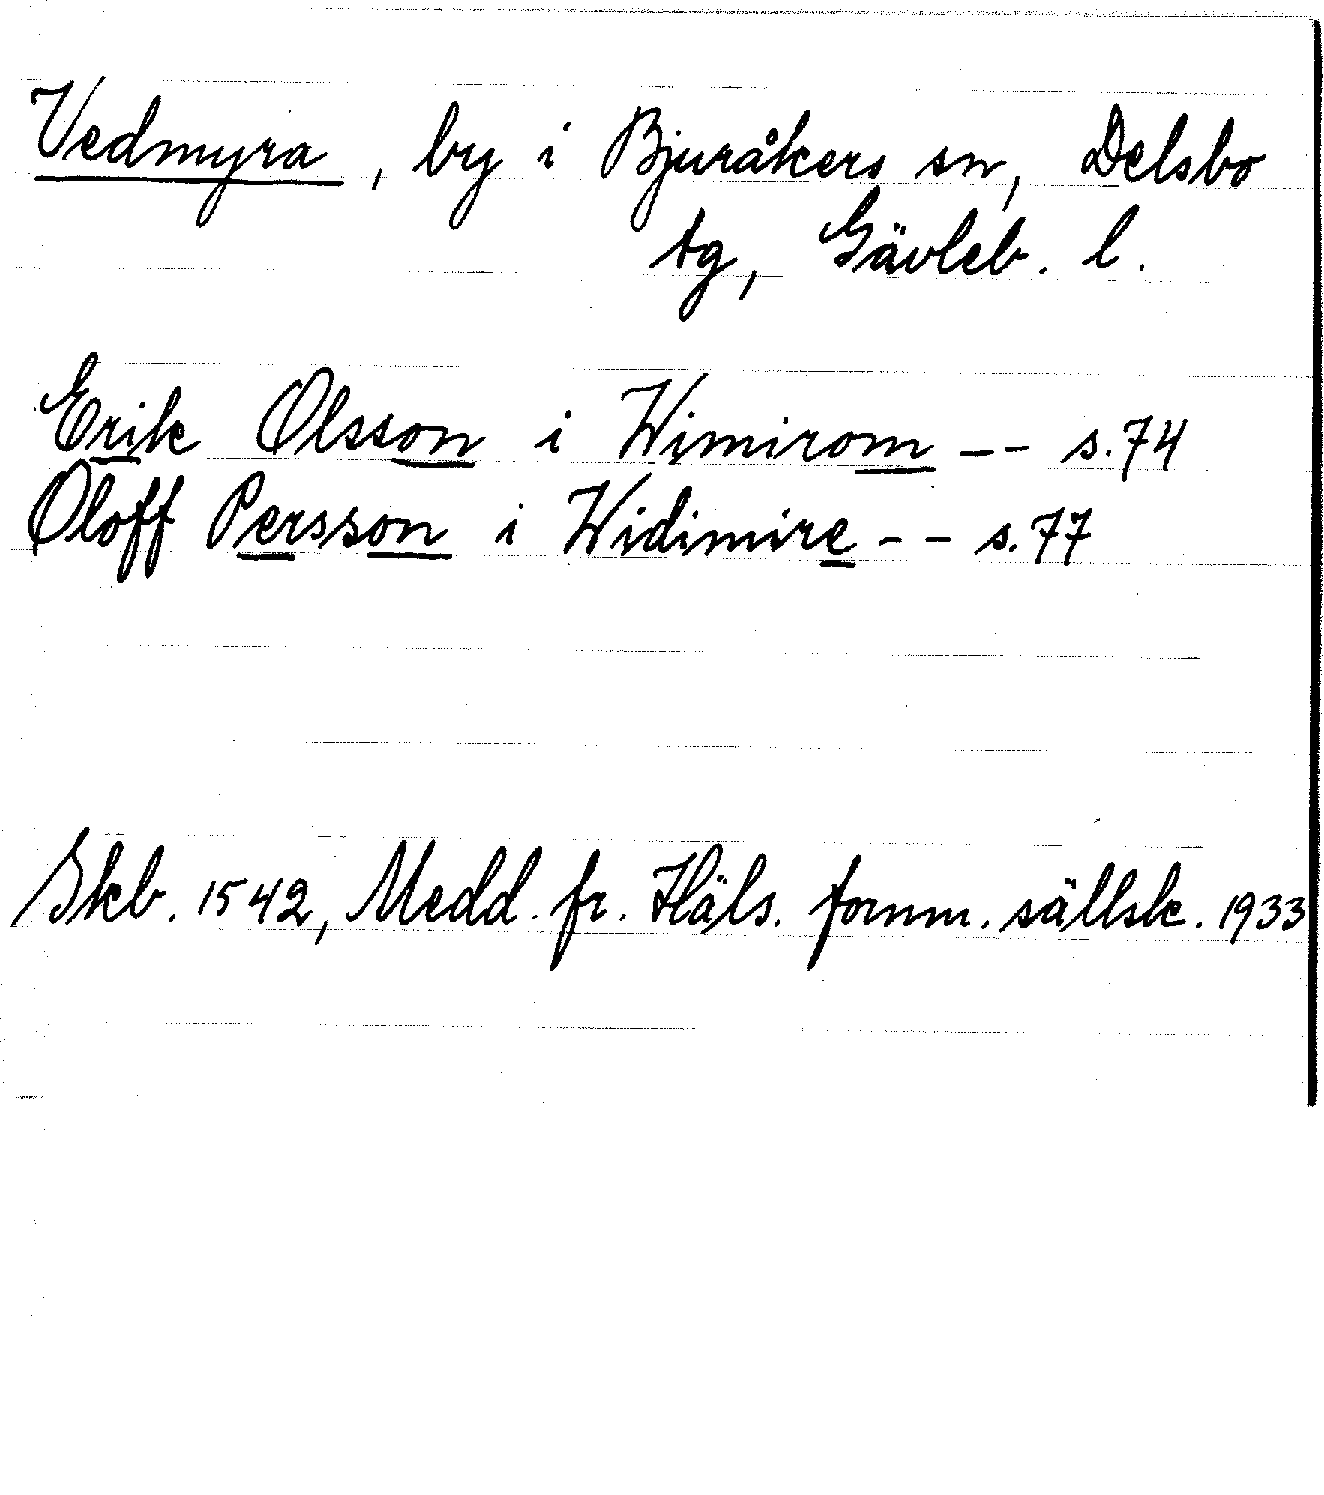 Vedmyra, by i Bjuråkers sn, Delsbo
tg, Gävleb. l.
Erik Olsson i Wimirom -- s.74
Oloff Persson i Widimire -- s.77
Skb. 1542, Medd. fr. Häls. fornm. sällsk. 1933